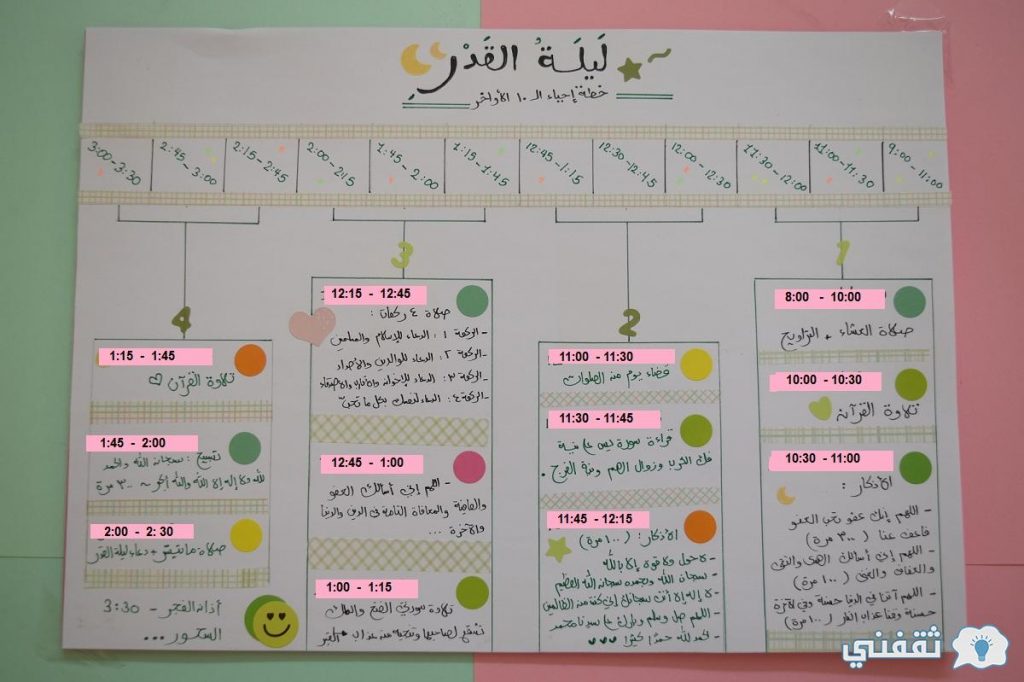 لَيلَةُ القَدْر
خطة إحياء الـ ١٠ الأواخر
9:00 - 11:00
11:00 - 11:30
11:30 - 12:00
12:00 - 12:30
12:30 - 12:45
12:45 - 1:15
1:15 - 1:45
1:45 - 2:00
2:00 - 2:15
2:15 - 2:45
2:45 - 3:00
3:00 - 3:30
1
8:00 - 10:00
صلاة العشاء + التراويح
10:00 - 10:30
تلاوة القرآن
10:30 - 11:00
الأذكار :
- اللهم إنك عفو تحب العفو
فاعف عنا (٣٠٠ مرة)
- اللهم إني أسألك الهدى والتقى
والعفاف والغنى (١٠٠ مرة)
- اللهم آتنا في الدنيا حسنة وفي الآخرة
حسنة وقنا عذاب النار (١٠٠ مرة)
2
11:00 - 11:30
قضاء يوم من الصلوات
11:30 - 11:45
قراءة سورة يس على نية
فك الكرب وزوال الهم ونية الفرج .
11:45 - 12:15
الأذكار : (١٠٠ مرة)
- لا حول ولا قوة إلا بالله
- سبحان الله وبحمده سبحان الله العظيم
- لا إله إلا أنت سبحانك إني كنت من الظالمين
- اللهم صل وسلم وبارك على سيدنا محمد
- الحمد لله حمدًا كثيرًا
3
12:15 - 12:45
صلاة ٤ ركعات :
- الركعة ١ : الدعاء للإسلام والمسلمين
- الركعة ٢ : الدعاء للوالدين والأجداد
- الركعة ٣ : الدعاء للإخوان والأقارب والأصدقاء
- الركعة ٤ : الدعاء لنفسك بكل ما تحب
12:45 - 1:00
- اللهم إني أسألك العفو
والعافية والمعافاة التامة في الدين والدنيا
والآخرة ...
1:00 - 1:15
تلاوة سورتي الفتح والملك
تشفع لصاحبها وتنجيه من عذاب القبر
4
1:15 - 1:45
تلاوة القرآن
1:45 - 2:00
تسبيح : سبحان الله والحمد
لله ولا إله إلا الله والله أكبر ~ ٣٠٠ مرة
2:00 - 2:30
صلاة ماتيسّر + دعاء ليلة القدر
أذان الفجر - 3:30
السحور ...
ثقفني